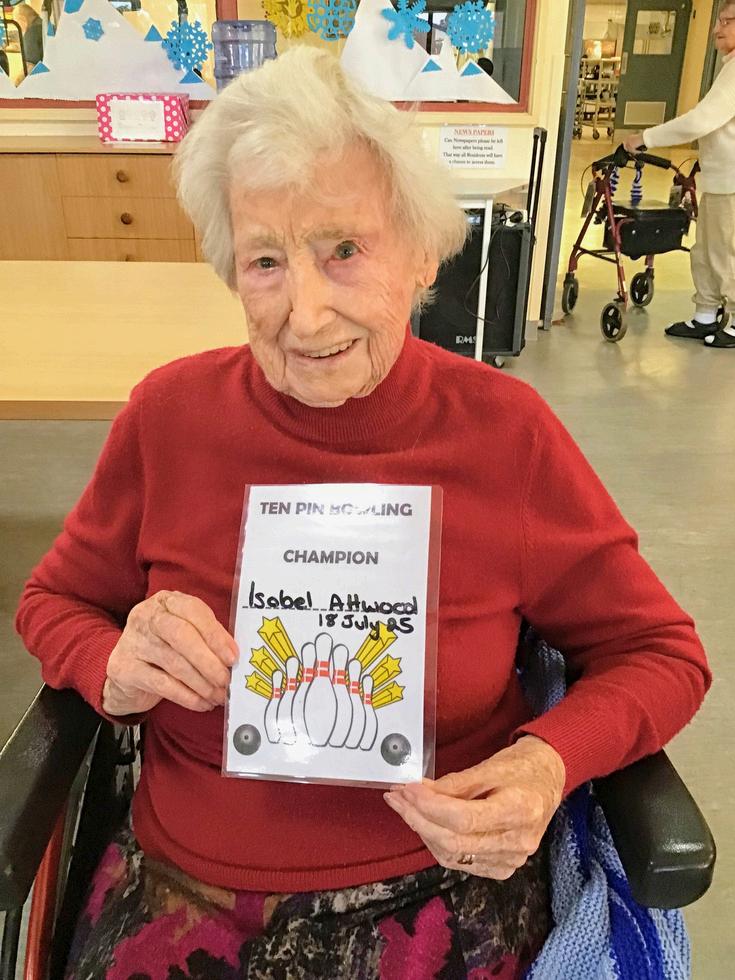 NEWS PAPERS
Can Newspapers please be left
here after being read
That way all Residents will have
a chance to access them.
RMS
TEN PIN BOWLING
CHAMPION
Isobel Attwood
18 July 25